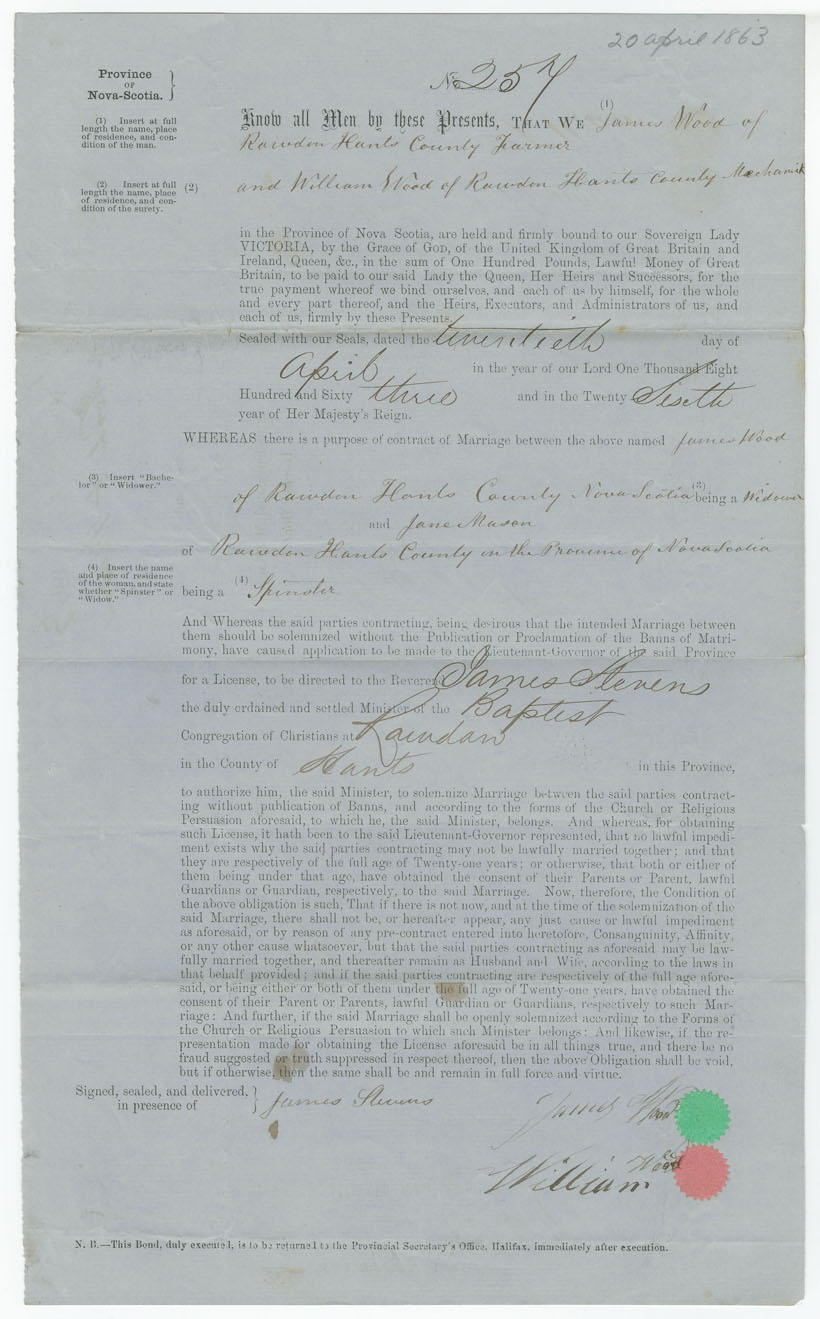 20 april 1863
Province
OF
Nova-Scotia.
No 257
(1) Insert at full
length the name, place
of residence, and con-
dition of the man.
Know all Men by these Presents, THAT WE (1) James Wood of
Rawdon Hants County Farmer
(2) Insert at full
length the name, place
of residence, and con-
dition of the surety.
(2) and William Wood of Rawdon Hants County Mechanick
in the Province of Nova Scotia, are held and firmly bound to our Sovereign Lady
VICTORIA, by the Grace of GOD, of the United Kingdom of Great Britain and
Ireland, Queen, &c., in the sum of One Hundred Pounds, Lawful Money of Great
Britain, to be paid to our said Lady the Queen, Her Heirs and Successors, for the
true payment whereof we bind ourselves, and each of us by himself, for the whole
and every part thereof, and the Heirs, Executors, and Administrators of us, and
each of us, firmly by these Presents.
Sealed with our Seals, dated the twentieth day of
April in the year of our Lord One Thousand Eight
Hundred and Sixty three and in the Twenty Sixth
year of Her Majesty's Reign.
WHEREAS there is a purpose of contract of Marriage between the above named James Wood
(3) Insert "Bache-
lor" or "Widower."
of Rawdon Hants County Nova Scotia (3) being a Widower
and Jane Mason
of Rawdon Hants County in the Province of Nova Scotia
(4) Insert the name
and place of residence
of the woman, and state
whether "Spinster" or
"Widow."
being a (4) Spinster
And Whereas the said parties contracting, being desirous that the intended Marriage between
them should be solemnized without the Publication or Proclamation of the Banns of Matri-
mony, have caused application to be made to the Lieutenant-Governor of the said Province
for a License, to be directed to the Reverend James Stevens
the duly ordained and settled Minister of the Baptist
Congregation of Christians at Rawdon
in the County of Hants in this Province,
to authorize him, the said Minister, to solemnize Marriage between the said parties contract-
ing without publication of Banns, and according to the forms of the Church or Religious
Persuasion aforesaid, to which he, the said Minister, belongs. And whereas, for obtaining
such License, it hath been to the said Lieutenant-Governor represented, that no lawful impedi-
ment exists why the said parties contracting may not be lawfully married together; and that
they are respectively of the full age of Twenty-one years; or otherwise, that both or either of
them being under that age, have obtained the consent of their Parents or Parent, lawful
Guardians or Guardian, respectively, to the said Marriage. Now, therefore, the Condition of
the above obligation is such, That if there is not now, and at the time of the solemnization of the
said Marriage, there shall not be, or hereafter appear, any just cause or lawful impediment
as aforesaid, or by reason of any pre-contract entered into heretofore, Consanguinity, Affinity,
or any other cause whatsoever, but that the said parties contracting as aforesaid may be law-
fully married together, and thereafter remain as Husband and Wife, according to the laws in
that behalf provided; and if the said parties contracting are respectively of the full age afore-
said, or being either or both of them under the full age of Twenty-one years, have obtained the
consent of their Parent or Parents, lawful Guardian or Guardians, respectively to such Mar-
riage: And further, if the said Marriage shall be openly solemnized according to the Forms of
the Church or Religious Persuasion to which such Minister belongs: And likewise, if the re-
presentation made for obtaining the License aforesaid be in all things true, and there be no
fraud suggested or truth suppressed in respect thereof, then the above Obligation shall be void,
but if otherwise, then the same shall be and remain in full force and virtue.
Signed, sealed, and delivered,
in presence of
James Stevens
James Wood
William Wood
N. B.—This Bond, duly executed, is to be returned to the Provincial Secretary's Office, Halifax, immediately after execution.